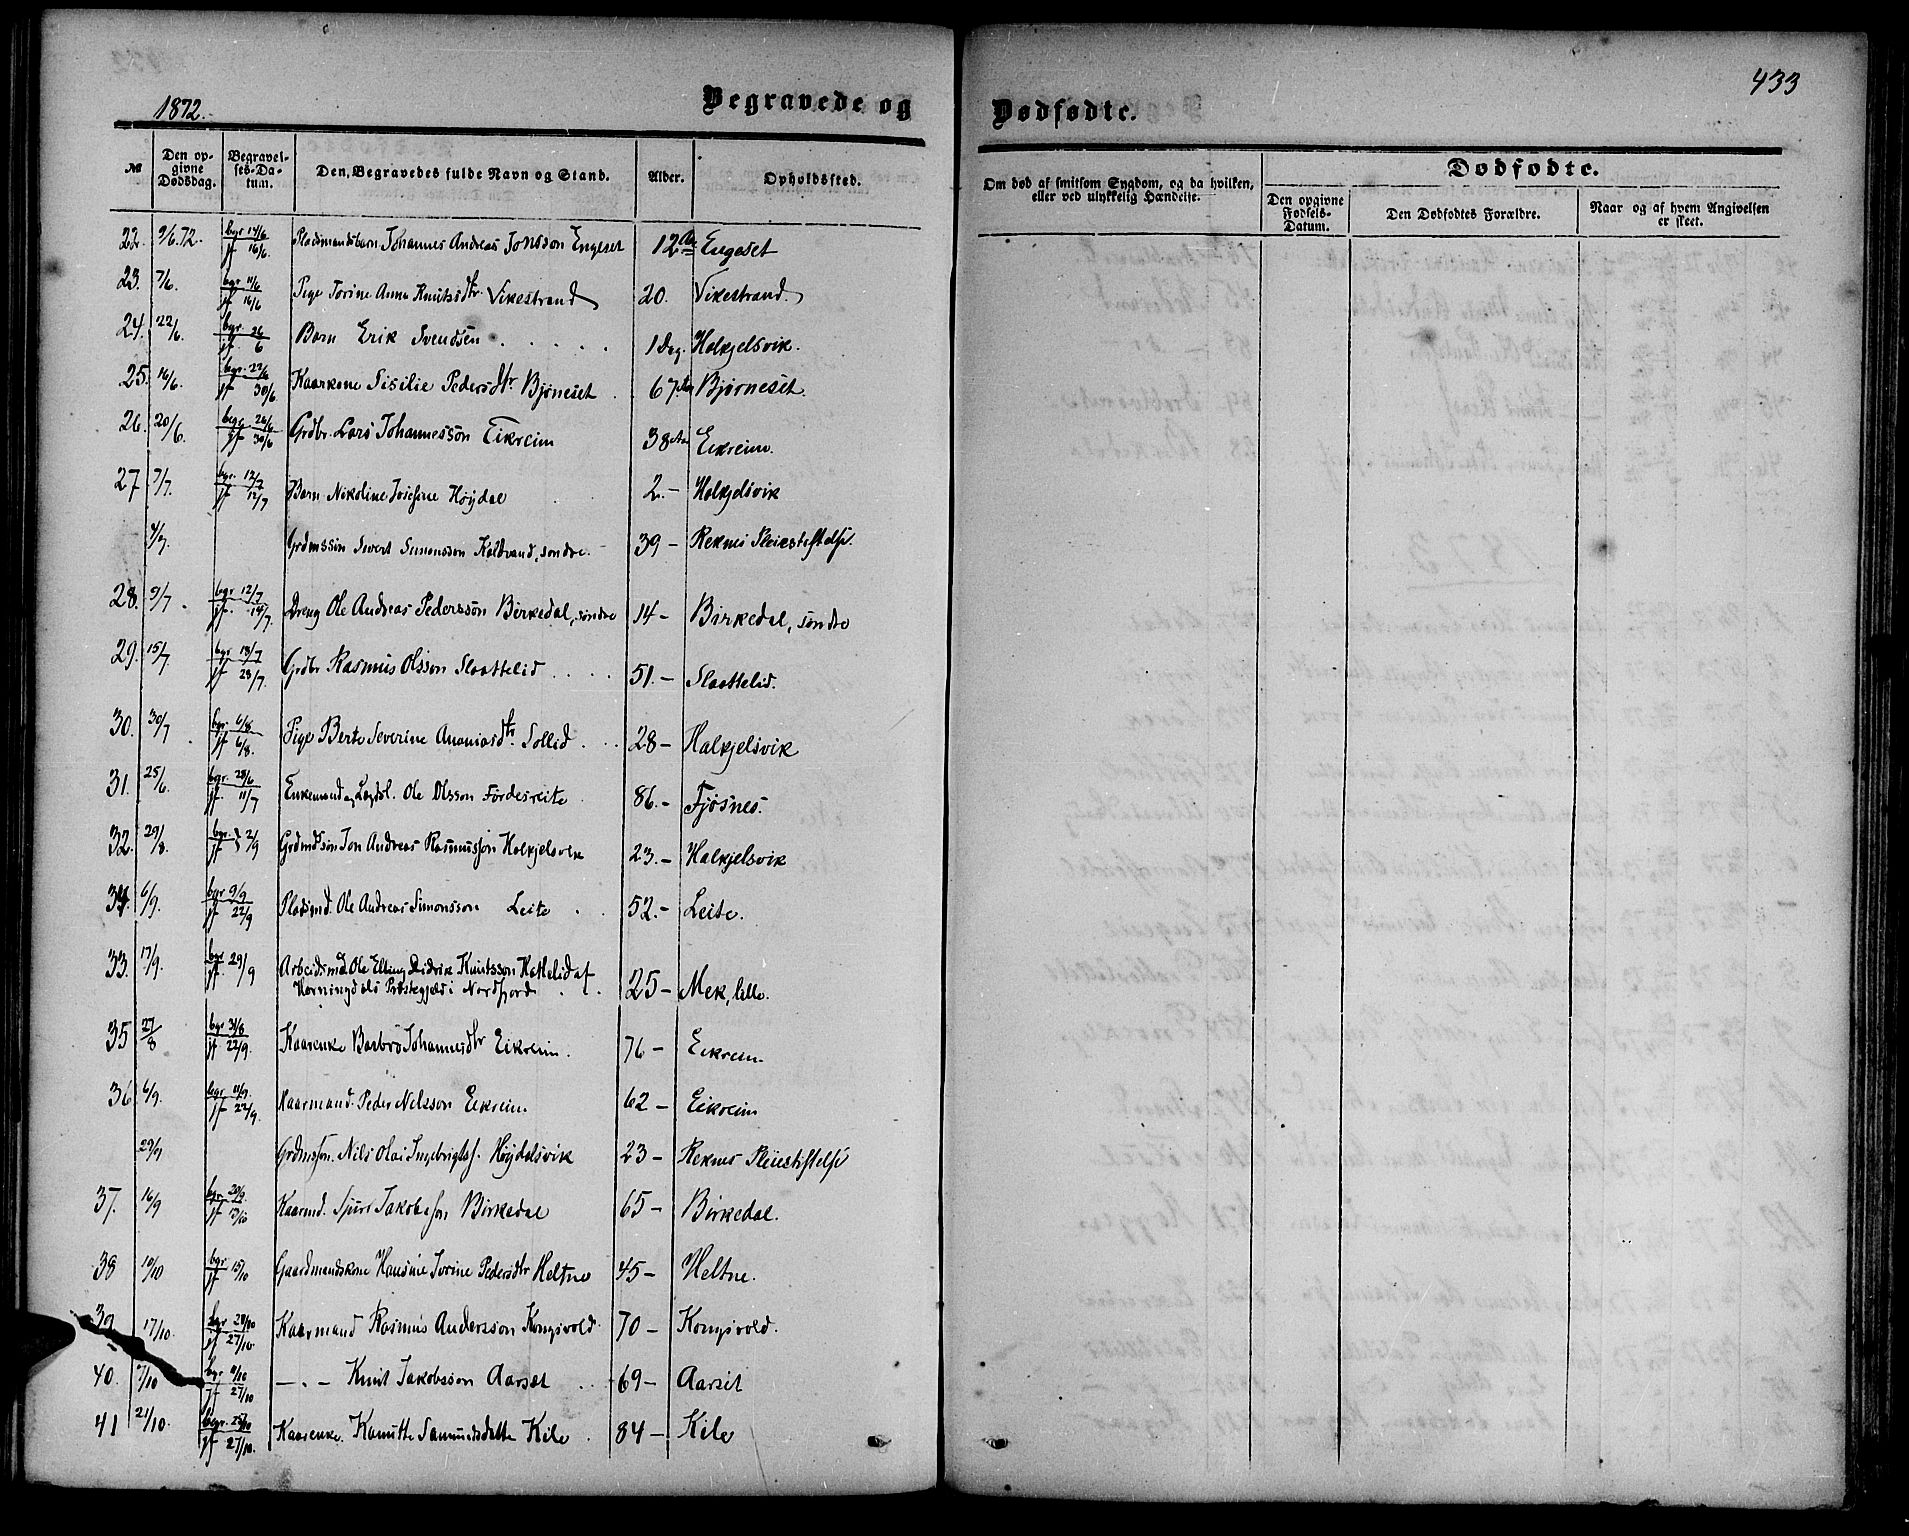 1872.
Begravede og
Dødfødte.
433
№
Den opgivne Dødsdag.
Begravelses-Datum.
Den Begravedes fulde Navn og Stand.
Alder.
Opholdssted.
Om død af smitsom Sygdom, og da hvilken, eller ved ulykkelig Hændelse.
Dødfødte.
Den opgivne Fødsels-Datum.
Den Dødfødtes Forældre.
Naar og af hvem Angivelsen er skeet.
22. 9/6.72. bgr 14/6 jf 16/6. Pladsmandsbarn Johannes Andreas Jonsson Engeset 12 Aar Engeset
23. 7/6. bgr 11/6 jf 16/6 Pige Jorine Anna Knutsdtr. Vikestrand 20. Vikestrand.
24. 22/6. bgr 26 jf. 6 Barn Erik Svendsen 1 Dag. Halkjelsvik.
25. 16/6. bgr. 22/6 jf 30/6. Kaarkone Sisilie Pedersdtr. Bjørneset 67 Aar Bjørneset.
26. 20/6. begr 26/6 jf 30/6 Grdbr. Lars Johannessøn Eikreim 38 Aar Eikreim.
27 7/7. bgr. 12/7 jf 12/7 Barn Nikoline Josefine Høydal 2. - Halkjelsvik
4/7. Grdmssøn Sivert Simonssøn Kaldvand, søndre. 39 - Reknes Pleiestiftelse.
28. 9/7. bgr 12/7 jf. 14/7. Dreng Ole Andreas Pederssøn Birkedal, søndre 14 - Birkedal, søndre
29. 15/7. bgr 18/7 jf 28/7. Grdbr Rasmus Olsson Slaattelid 51. - Slaattelid.
30. 30/7. bgr. 6/8 jf 6/8. Pige Berte Severine Ananiasdtr. Sollid 28 - Halkjelsvik
31. 25/6. bgr. 28/6 jf. 11/7 Enkemand og Lægdsl. Ole Olsson Førdesreite 86. - Fjøsnes.
32. 29/8. bgr. & jf 2/9 Grdmdsøn Jon Andreas Rasmussøn Halkjelsvik 23. - Halkjelsvik
34. 6/9. bgr 9/9 jf 22/9 Pladsmd. Ole Andreas Simonsson Leite 52. - Leite.
33. 17/9. bgr jf. 29/9 Arbeidsmd Ole Elling Didrik Knutsson Hattelid af
Horningdals Præstegjeld i Nordfjord 25 - Mek, lille.
35 27/8 bgr 31/8 jf 22/9. Kaarenke Barbro Johannesdtr Eikreim. 76 - Eikreim
36 6/9. begr 11/9. jf 22/9. Kaarmand. Peder Nilsson Eikreim 62 - Eikreim
29/9 Grdmssøn. Nils Olai Ingebrigts. Høydalsvik 23 - Reknes Pleiestiftelse
37. 16/9 bgr 20/9. jf 13/10 Kaarmd. Sjur Jakobsson Birkedal 65 - Birkedal.
38 10/10 bgr jf 15/10 Gaardmandskone Hansine Jorine Pedersdtr Heltne 45 - Heltne.
39 17/10. bgr 20/10 jf 27/10. Kaarmand Rasmus Anderssøn Kongsvold 70 - Kongsvold.
40. 7/10 bgr 11/10 jf 27/10 - . - Knut Jakobsson Aarset 69 - Aarset
41 21/10. begr. 25/10 jf 27/10. Kaarenke. Kanutte Samundsdatte Kile 84 - Kile